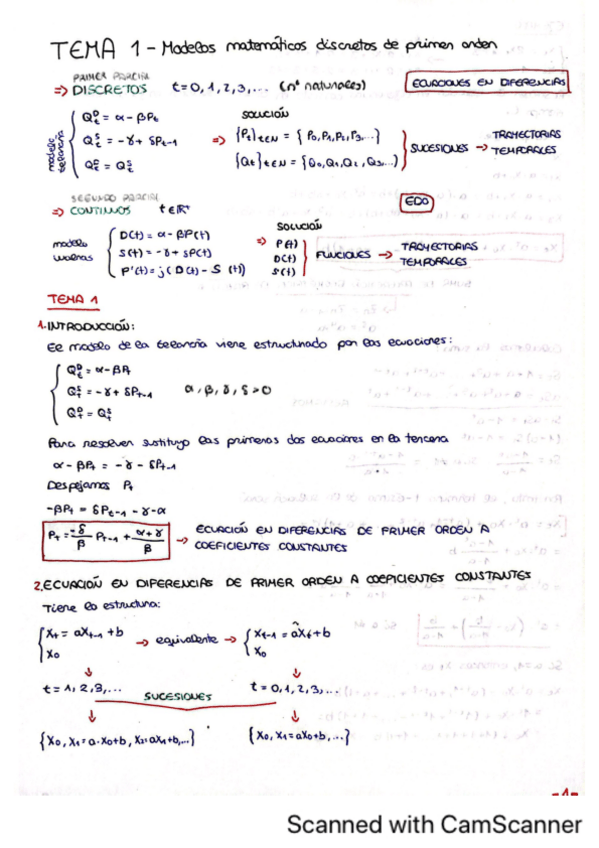 TEMA 1 - Modelos matemáticos discretos de primer orden
PRIMER PARCIAL
⇒ DISCRETOS t=0,1,2,3,... (nº naturales) ECUACIONES EN DIFERENCIAS
modelo telaraña
Qᴰt = α - βPt
Qˢt = -γ + δPt-1
Qᴰt = Qˢt
SOLUCIÓN
⇒ {Pt}t∈N = {P0,P1,P2,P3,...}
{Qt}t∈N = {Q0,Q1,Q2,Q3...}
SUCESIONES → TRAYECTORIAS TEMPORALES
SEGUNDO PARCIAL
⇒ CONTINUOS t∈R⁺ EDO
modelo walras
D(t) = α - βP(t)
S(t) = -γ + δP(t)
P'(t) = j(D(t) - S(t))
SOLUCIÓN
⇒ P(t)
D(t)
S(t)
FUNCIONES → TRAYECTORIAS TEMPORALES
TEMA 1
1. INTRODUCCIÓN:
El modelo de la telaraña viene estructurado por las ecuaciones:
Qᴰt = α - βPt
Qˢt = -γ + δPt-1 α, β, γ, δ > 0
Qᴰt = Qˢt
Para resolver sustituyo las primeras dos ecuaciones en la tercera
α - βPt = -γ - δPt-1
Despejamos Pt
-βPt = δPt-1 - γ - α
Pt = -δ/β Pt-1 + α+γ/β → ECUACIÓN EN DIFERENCIAS DE PRIMER ORDEN A
COEFICIENTES CONSTANTES
2. ECUACIÓN EN DIFERENCIAS DE PRIMER ORDEN A COEFICIENTES CONSTANTES
Tiene la estructura:
{Xt = aXt-1 + b → equivalente → {Xt-1 = aXt + b
X0 X0
↓ ↓
t = 1,2,3,... t = 0,1,2,3,...
SUCESIONES
↓ ↓
{X0, X1 = a·X0+b, X2=aX1+b,...} {X0, X1 = aX0+b,...}
-1-
Scanned with CamScanner